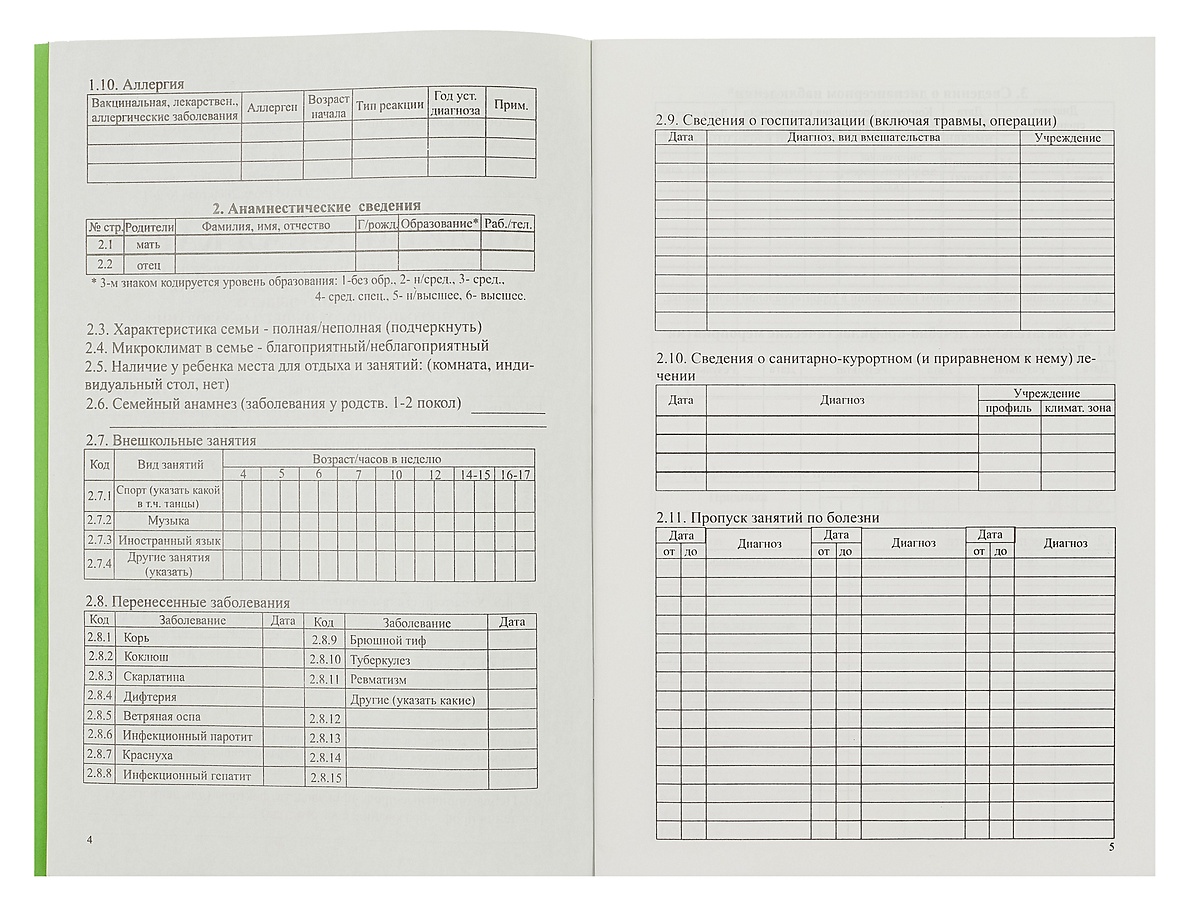 1.10. Аллергия
Вакцинальная, лекарствен., аллергические заболевания Аллерген Возраст начала Тип реакции Год уст. диагноза Прим.
2. Анамнестические сведения
№ стр. Родители Фамилия, имя, отчество Г/рожд. Образование* Раб./тел.
2.1 мать
2.2 отец
* 3-м знаком кодируется уровень образования: 1-без обр., 2- н/сред., 3- сред.,
4- сред. спец., 5- н/высшее, 6- высшее.
2.3. Характеристика семьи - полная/неполная (подчеркнуть)
2.4. Микроклимат в семье - благоприятный/неблагоприятный
2.5. Наличие у ребенка места для отдыха и занятий: (комната, инди-
видуальный стол, нет)
2.6. Семейный анамнез (заболевания у родств. 1-2 покол)
2.7. Внешкольные занятия
Код Вид занятий Возраст/часов в неделю
4 5 6 7 10 12 14-15 16-17
2.7.1 Спорт (указать какой в т.ч. танцы)
2.7.2 Музыка
2.7.3 Иностранный язык
2.7.4 Другие занятия (указать)
2.8. Перенесенные заболевания
Код Заболевание Дата Код Заболевание Дата
2.8.1 Корь 2.8.9 Брюшной тиф
2.8.2 Коклюш 2.8.10 Туберкулез
2.8.3 Скарлатина 2.8.11 Ревматизм
2.8.4 Дифтерия Другие (указать какие)
2.8.5 Ветряная оспа 2.8.12
2.8.6 Инфекционный паротит 2.8.13
2.8.7 Краснуха 2.8.14
2.8.8 Инфекционный гепатит 2.8.15
4
2.9. Сведения о госпитализации (включая травмы, операции)
Дата Диагноз, вид вмешательства Учреждение
2.10. Сведения о санитарно-курортном (и приравненом к нему) ле-
чении
Дата Диагноз Учреждение
профиль климат. зона
2.11. Пропуск занятий по болезни
Дата Диагноз Дата Диагноз Дата Диагноз
от до от до от до
5